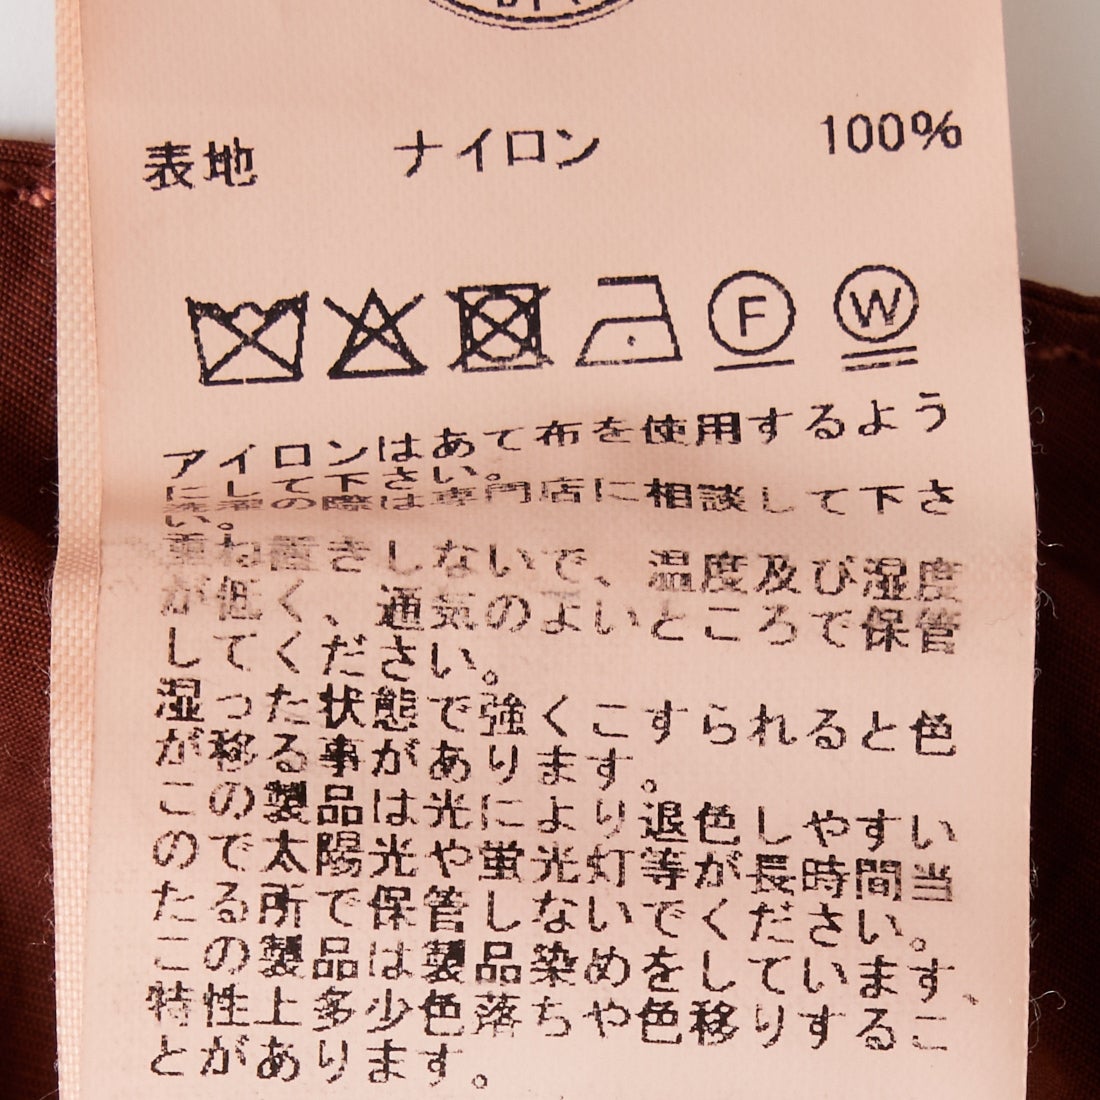 表地 ナイロン 100%
F W
アイロンはあて布を使用するよう
にして下さい。
洗濯の際は専門店に相談して下さ
い。
重ね置きしないで、温度及び湿度
が低く、通気のよいところで保管
してください。
湿った状態で強くこすられると色
が移る事があります。
この製品は光により退色しやすい
ので太陽光や蛍光灯等が長時間当
たる所で保管しないでください。
この製品は製品染めをしています、
特性上多少色落ちや色移りするこ
とがあります。